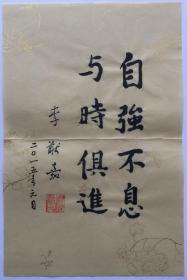 自強不息
与時俱進
李猷嘉
二〇一五年元月